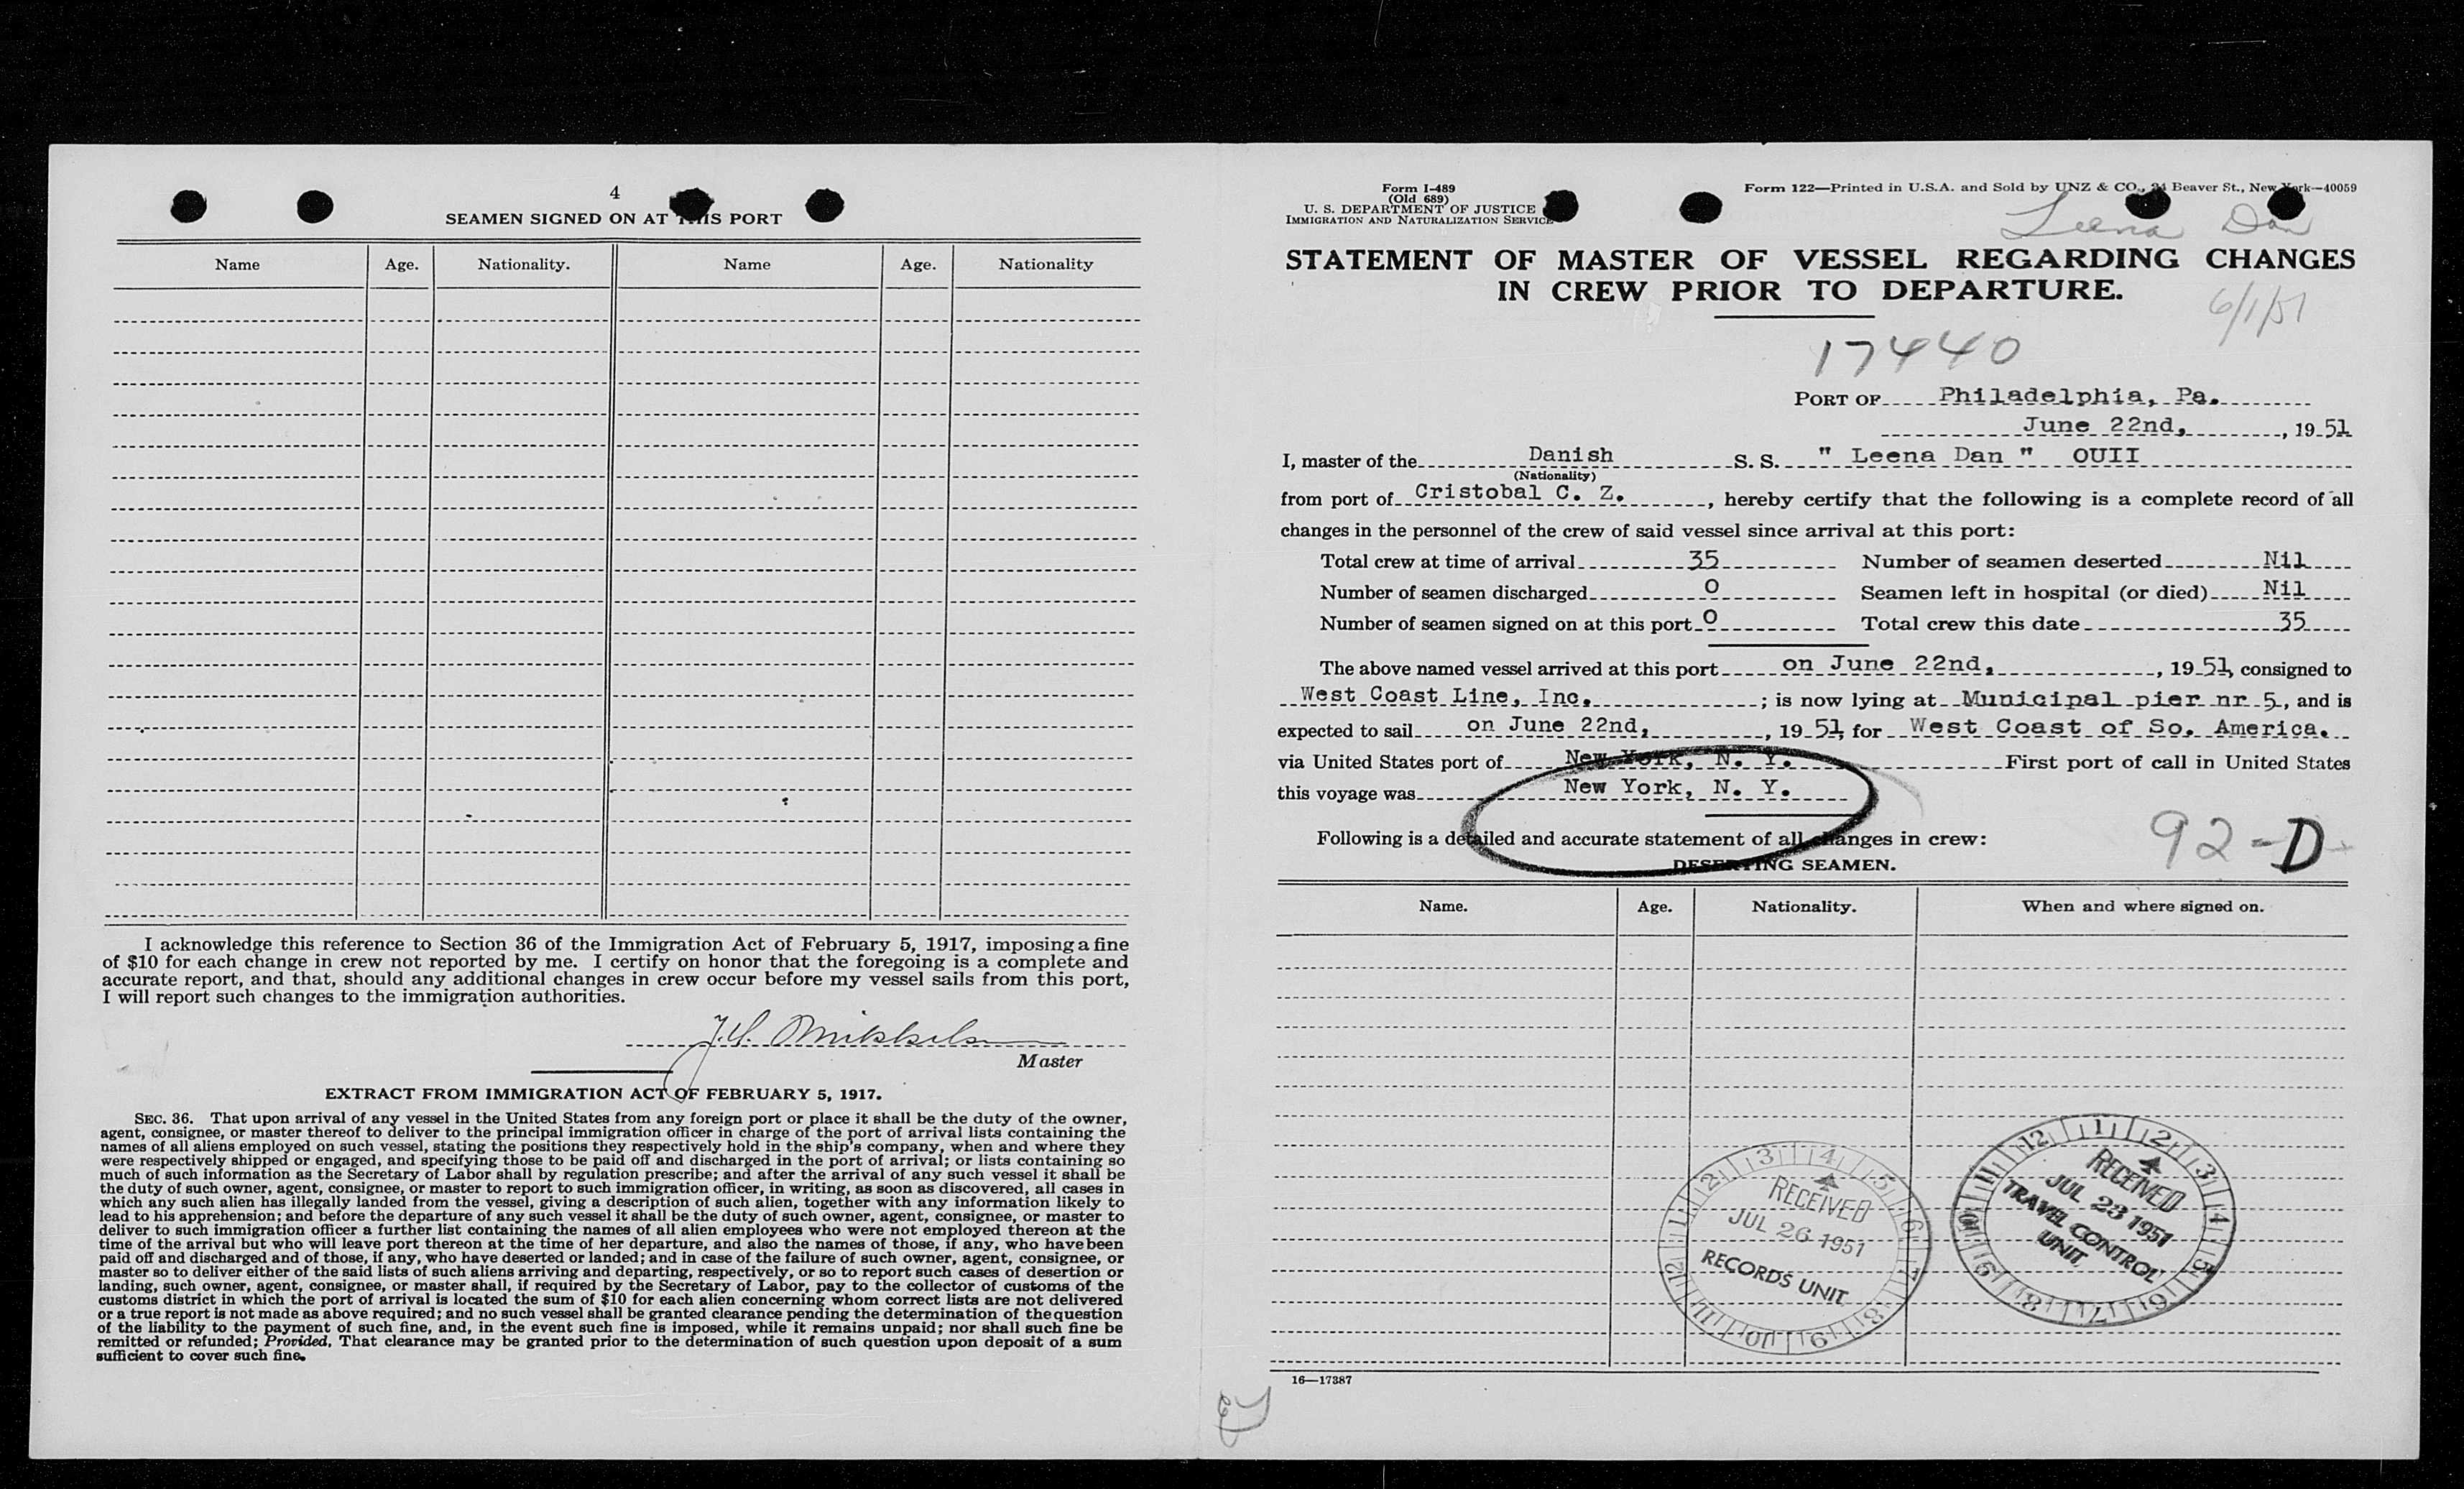 4
SEAMEN SIGNED ON AT THIS PORT
Name Age. Nationality. Name Age. Nationality
I acknowledge this reference to Section 36 of the Immigration Act of February 5, 1917, imposing a fine
of $10 for each change in crew not reported by me. I certify on honor that the foregoing is a complete and
accurate report, and that, should any additional changes in crew occur before my vessel sails from this port,
I will report such changes to the immigration authorities.
Master
EXTRACT FROM IMMIGRATION ACT OF FEBRUARY 5, 1917.
SEC. 36. That upon arrival of any vessel in the United States from any foreign port or place it shall be the duty of the owner,
agent, consignee, or master thereof to deliver to the principal immigration officer in charge of the port of arrival lists containing the
names of all aliens employed on such vessel, stating the positions they respectively hold in the ship's company, when and where they
were respectively shipped or engaged, and specifying those to be paid off and discharged in the port of arrival; or lists containing so
much of such information as the Secretary of Labor shall by regulation prescribe; and after the arrival of any such vessel it shall be
the duty of such owner, agent, consignee, or master to report to such immigration officer, in writing, as soon as discovered, all cases in
which any such alien has illegally landed from the vessel, giving a description of such alien, together with any information likely to
lead to his apprehension; and before the departure of any such vessel it shall be the duty of such owner, agent, consignee, or master to
deliver to such immigration officer a further list containing the names of all alien employees who were not employed thereon at the
time of the arrival but who will leave port thereon at the time of her departure, and also the names of those, if any, who have been
paid off and discharged and of those, if any, who have deserted or landed; and in case of the failure of such owner, agent, consignee, or
master so to deliver either of the said lists of such aliens arriving and departing, respectively, or so to report such cases of desertion or
landing, such owner, agent, consignee, or master shall, if required by the Secretary of Labor, pay to the collector of customs of the
customs district in which the port of arrival is located the sum of $10 for each alien concerning whom correct lists are not delivered
or a true report is not made as above required; and no such vessel shall be granted clearance pending the determination of the question
of the liability to the payment of such fine, and, in the event such fine is imposed, while it remains unpaid; nor shall such fine be
remitted or refunded; Provided, That clearance may be granted prior to the determination of such question upon deposit of a sum
sufficient to cover such fine.
Form I-489
(Old 689)
U. S. DEPARTMENT OF JUSTICE
IMMIGRATION AND NATURALIZATION SERVICE
Form 122—Printed in U.S.A. and Sold by UNZ & CO., 24 Beaver St., New York—40059
Leena Dan
STATEMENT OF MASTER OF VESSEL REGARDING CHANGES
IN CREW PRIOR TO DEPARTURE.
6/1/51
17440
PORT OF Philadelphia, Pa.
June 22nd, , 19 51
I, master of the Danish S. S. " Leena Dan " OUII
(Nationality)
from port of Cristobal C. Z. , hereby certify that the following is a complete record of all
changes in the personnel of the crew of said vessel since arrival at this port:
Total crew at time of arrival 35 Number of seamen deserted Nil
Number of seamen discharged 0 Seamen left in hospital (or died) Nil
Number of seamen signed on at this port 0 Total crew this date 35
The above named vessel arrived at this port on June 22nd, , 19 51, consigned to
West Coast Line, Inc. ; is now lying at Municipal pier nr 5, and is
expected to sail on June 22nd, , 19 51, for West Coast of So. America.
via United States port of New York, N. Y. First port of call in United States
this voyage was New York, N. Y.
Following is a detailed and accurate statement of all changes in crew:
92-D
DESERTING SEAMEN.
Name. Age. Nationality. When and where signed on.
RECEIVED
JUL 26 1951
RECORDS UNIT
1 2 3 4 5 6 7 8 9 10 11 12
RECEIVED
JUL 23 1951
TRAVEL CONTROL
UNIT
12 1 2 3 4 5 6 7 8 9 10 11
16—17387